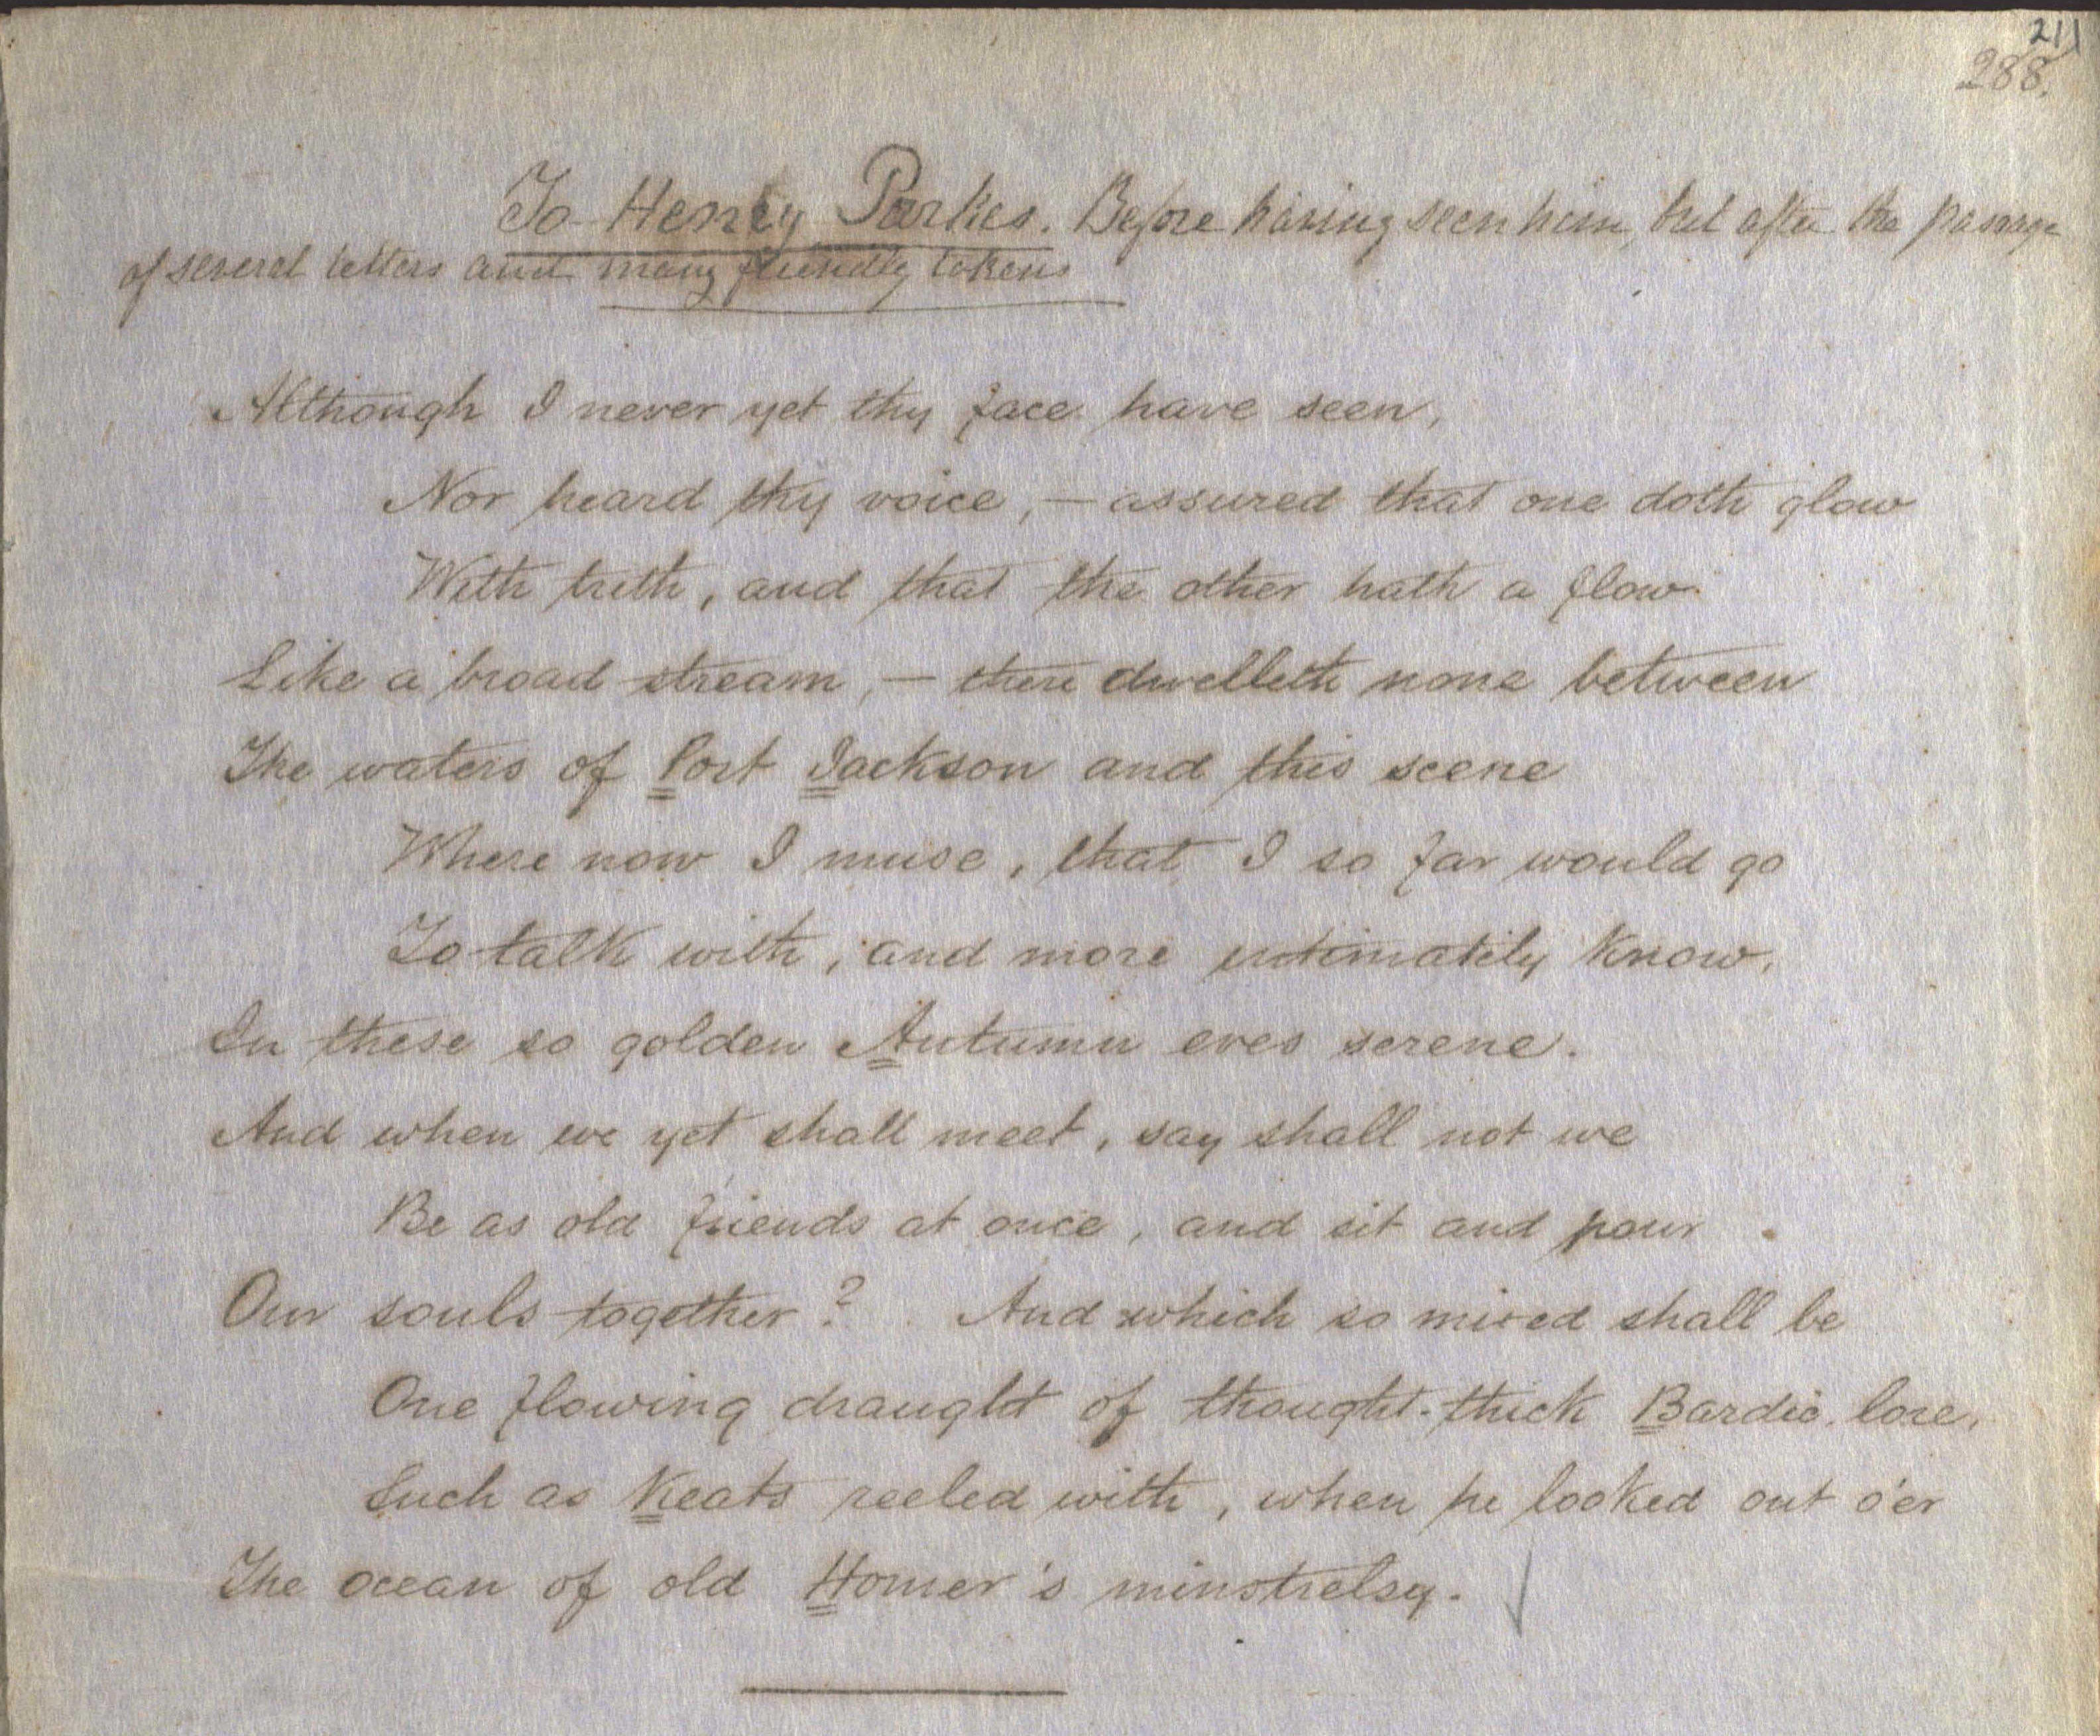 211
288.
To Henry Parkes. Before having seen him, but after the passage
of several letters and many friendly tokens
Although I never yet thy face have seen,
Nor heard thy voice, — assured that one doth glow
With truth, and that the other hath a flow
Like a broad stream, — there dwelleth none between
The waters of Port Jackson and this scene
Where now I muse, that I so far would go
To talk with, and more intimately know,
In these so golden Autumn eves serene.
And when we yet shall meet, say shall not we
Be as old friends at once, and sit and pour
Our souls together? And which so mixed shall be
One flowing draught of thought-thick Bardic lore,
Such as Keats reeled with, when he looked out o'er
The ocean of old Homer's minstrelsy.